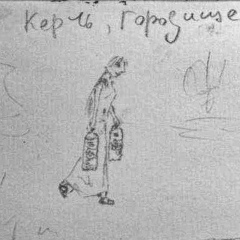 Керчь, Городище